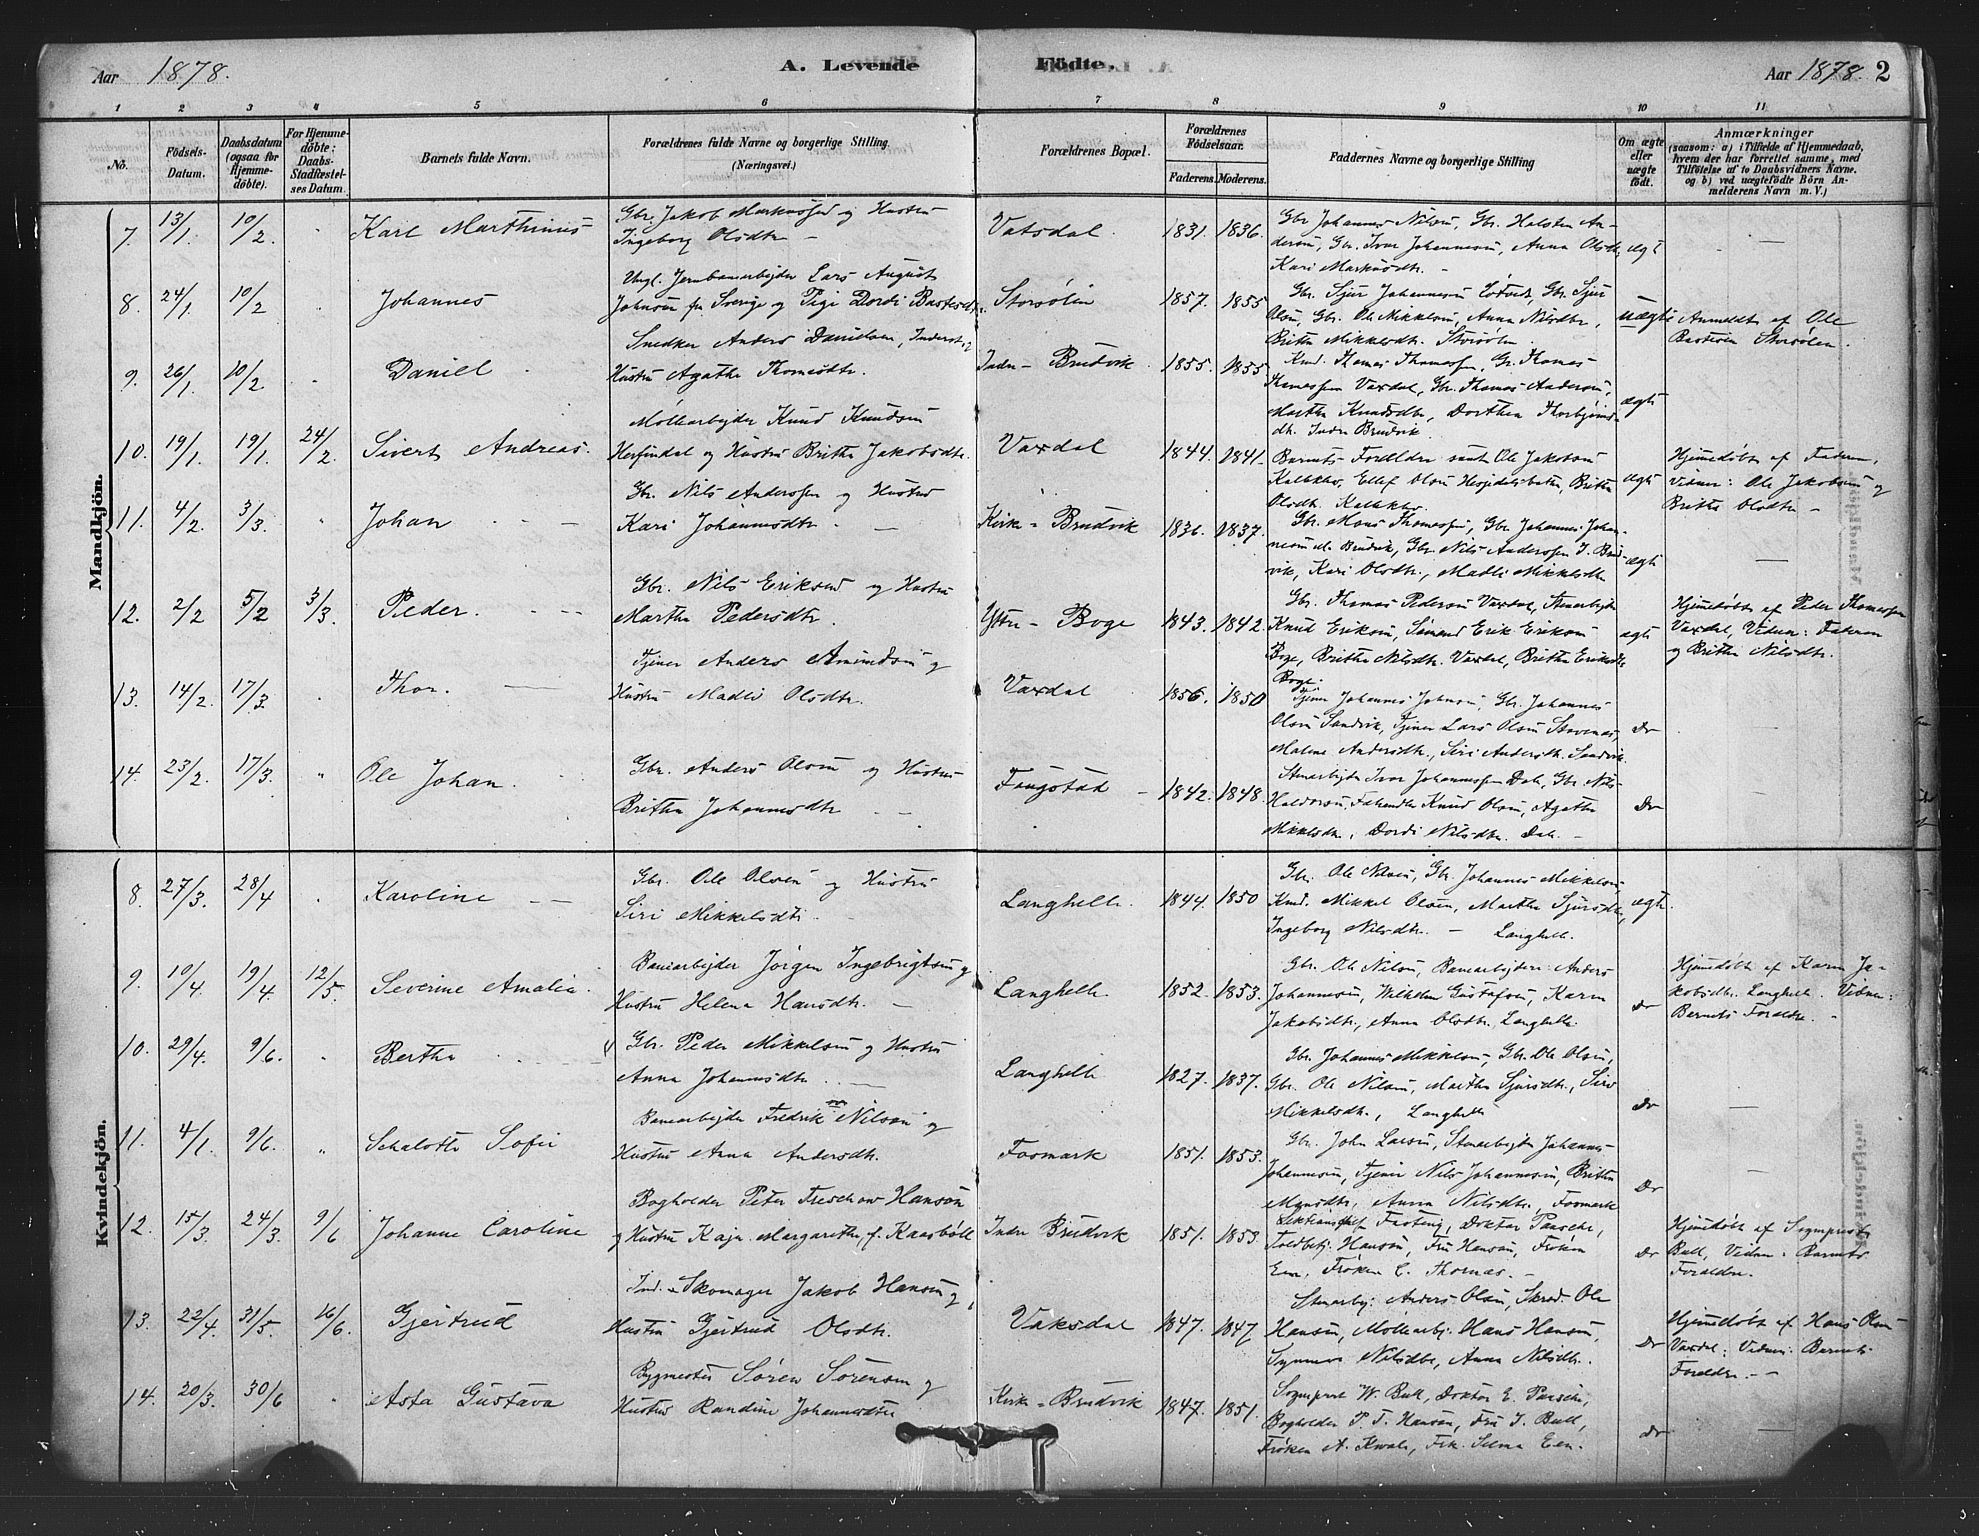 Aar 1878.
A. Levende Födte.
Aar 1878. 2
1 2 3 4 5 6 7 8 9 10 11
No.
Födsels-Datum.
Daabsdatum (ogsaa for Hjemme-döbte).
For Hjemme-döbte: Daabs-Stadfæstel-ses Datum.
Barnets fulde Navn.
Forældrenes fulde Navne og borgerlige Stilling. (Næringsvei.)
Forældrenes Bopæl.
Forældrenes Födselsaar.
Faderens. Moderens.
Faddernes Navne og borgerlige Stilling
Om ægte eller uægte födt.
Anmærkninger
(saasom: a) i Tilfælde af Hjemmedaab,
hvem der har forrettet samme, med
Tilföielse af to Daabsvidners Navne.
og b) ved uægtefödte Börn An-
melderens Navn m. V.)
Mandkjön.
7. 13/1. 10/2. " Karl Marthinus
Gbr. Jakob Markussen og Hustru
Ingeborg Olsdtr. –
Vatsdal. 1831. 1836.
Gbr Johannes Nilsen, Gbr. Halsten An-
dersen, Gbr. Ivar Johannesen, Anna Olsdtr,
Kari Markusdtr. –
ægt
8. 24/1. 10/2 " Johannes
Ungk. Jernbanearbejder Lars August
Johnsen fra Sverige og Pige Dordi
Storsölen 1857. 1855
Gbr. Sjur Johannesen, Gbr. Sjur
Olsen, Gbr. Ole Mikkelsen, Anna Nilsdtr,
Britha Mikkelsdtr. Storsölen.
uægte
Anmeldt af Ole
Storsölen.
9. 26/1. 10/2. " Daniel
Snedker Anders Danielsen,
Hustru Agatha Thomesdtr.
Indre – Brudvik. 1855. 1855
Knd. Thomas Thomassen, Gr. Thomas
Thomassen Vaxdal, Gbr. Thomas Andersen,
Martha Knudsdtr, Dorthea
dtr. Indre Brudvik.
ægte
10. 19/1. 19/1. 24/2. Sivert Andreas.
Möllearbejder Knud Knudsen
Herfindal og Hustru Britha Jakobsdtr.
Vaxdal 1844. 1841.
Barnets Forældre samt Ole Jakobsen
Olsdtr.
ægte
Hjemmedöbt af Faderen,
Vidner: Ole Jakobsen og
Britha Olsdtr –
11. 4/2. 3/3. " Johan
Gbr. Nils Anderssen og Hustru
Kari Johannesdtr. –
Kirke – Brudvik 1836. 1837.
Gbr. Mons Thomessen, Gbr. Johannes Johan-
nesen Brudvik, Gbr. Nils Anderssen I. Brud-
vik, Kari Olsdtr., Madli Mikkelsdtr.
ægte
12. 2/2 5/2 3/3. Peder.
Gbr. Nils Eriksen og Hustru
Martha Pedersdtr.
Yttre – Boge 1843. 1842.
Gbr. Thomas Pedersen Vaxdal, Stenarbejder
Knud Eriksen, Sömand Erik Eriksen
Boge, Britha Nilsdtr. Vaxdal, Britha Eriksdtr
Boge.
ægte
Hjemmedöbt af Peder Thomessen
Vaxdal, Vidner: Faderen
og Britha Nilsdtr.
13. 14/2. 17/3. " Thor.
Tjener Anders Amundsen og
Hustru Madli Olsdtr.
Vaxdal 1856. 1850
Tjener Johannes Johnsen, Gbr. Johannes
Olsen Sandvik, Tjener Lars Olsen
Malene Andersdtr., Siri Andersdtr. Sandvik.
Do
14. 23/2. 17/3. " Ole Johan.
Gbr. Anders Olsen og Hustru
Britha Johannesdtr
Fugstad – 1842. 1848.
Stenarbejder Ivar Johannessen Dale, Gbr. Nils
Haldorsen, Knud Olsen, Agatha
Mikkelsdtr., Dordi Nilsdtr. Dale. –
Do
Kvindekjön.
8. 27/3. 28/4 " Karoline
Gbr. Ole Olsen og Hustru
Siri Mikkelsdtr.
Langhelle. 1844. 1850
Gbr. Ole Nilsen, Gbr. Johannes Mikkelsen,
Knd. Mikkel Olsen, Martha Sjursdtr,
Ingeborg Nilsdtr. – Langhelle.
ægte.
9. 10/4. 19/4. 12/5. Severine Amalia.
Banearbejder Jörgen Ingebrigtsen og
Hustru Helena Hansdtr. –
Langhelle. 1852. 1853.
Gbr. Ole Nilsen, Banearbejdere: Anders
Johannesen, Wilhelm Gustafsen, Karen
Jakobsdtr., Anna Olsdtr. Langhelle.
Do
Hjemmedöbt af Karen Ja-
kobsdtr. Langhelle. Vidner:
Barnets Forældre. –
10. 29/4. 9/6. " Bertha
Gbr. Peder Mikkelsen og Hustru
Anna Johannesdtr. –
Langhelle 1827. 1837.
Gbr. Johannes Mikkelsen, Gbr. Ole Olsen,
Gbr. Ole Nilsen, Martha Sjursdtr., Siri
Mikkelsdtr., Langhelle
Do
11. 4/1. 9/6. " Schalotte Sofie
Banearbejder Fredrik Nilsen og
Hustru Anna Andersdtr.
Fosmark 1851. 1853.
Gbr. John Larsen, Stenarbejder Johannes
Johannesen, Tjener Nils Johannesen, Britha
Monsdtr., Anna Nilsdtr., Fosmark
Do
12. 15/3. 24/3. 9/6 Johanne Caroline
Bogholder Peter Treschow Hansen
og Hustru Kaja Margarethe, f. Kaasböll
Indre Brudvik 1851. 1853.
Fasting, Doktor Pasche,
Toldbetj. Hansen, Fru Hansen, Fröken
Een, Fröken C. Thornæs. –
Do
Hjemmedöbt af Sognepræst
Bull, Vidner: Barnets
Forældre.
13. 22/4. 31/5. 16/6. Gjertrud
Ind. – Skomager Jakob Hansen og
Hustru Gjertrud Olsdtr.
Vaksdal 1847. 1847.
Stenarbj. Anders Olsen, Skræd. Ole
Hansen, Möllearbj. Hans Hansen,
Synneva Nilsdtr, Anna Nilsdtr.
Do
Hjemmedöbt af Hans Olsen
Vaxdal: Vidner: Barnets
Forældre. –
14. 20/3. 30/6 " Asta Gustava
Bygmester Sören Sörensen og
Hustru Randine Johannesdtr
Kirke – Brudvik 1847. 1851.
Sognepræst W. Bull, Doktor E. Pasche,
Bogholder P. T. Hansen, Fru J. Bull,
Fröken A. Kwale, Frk. Selma Een.
Do